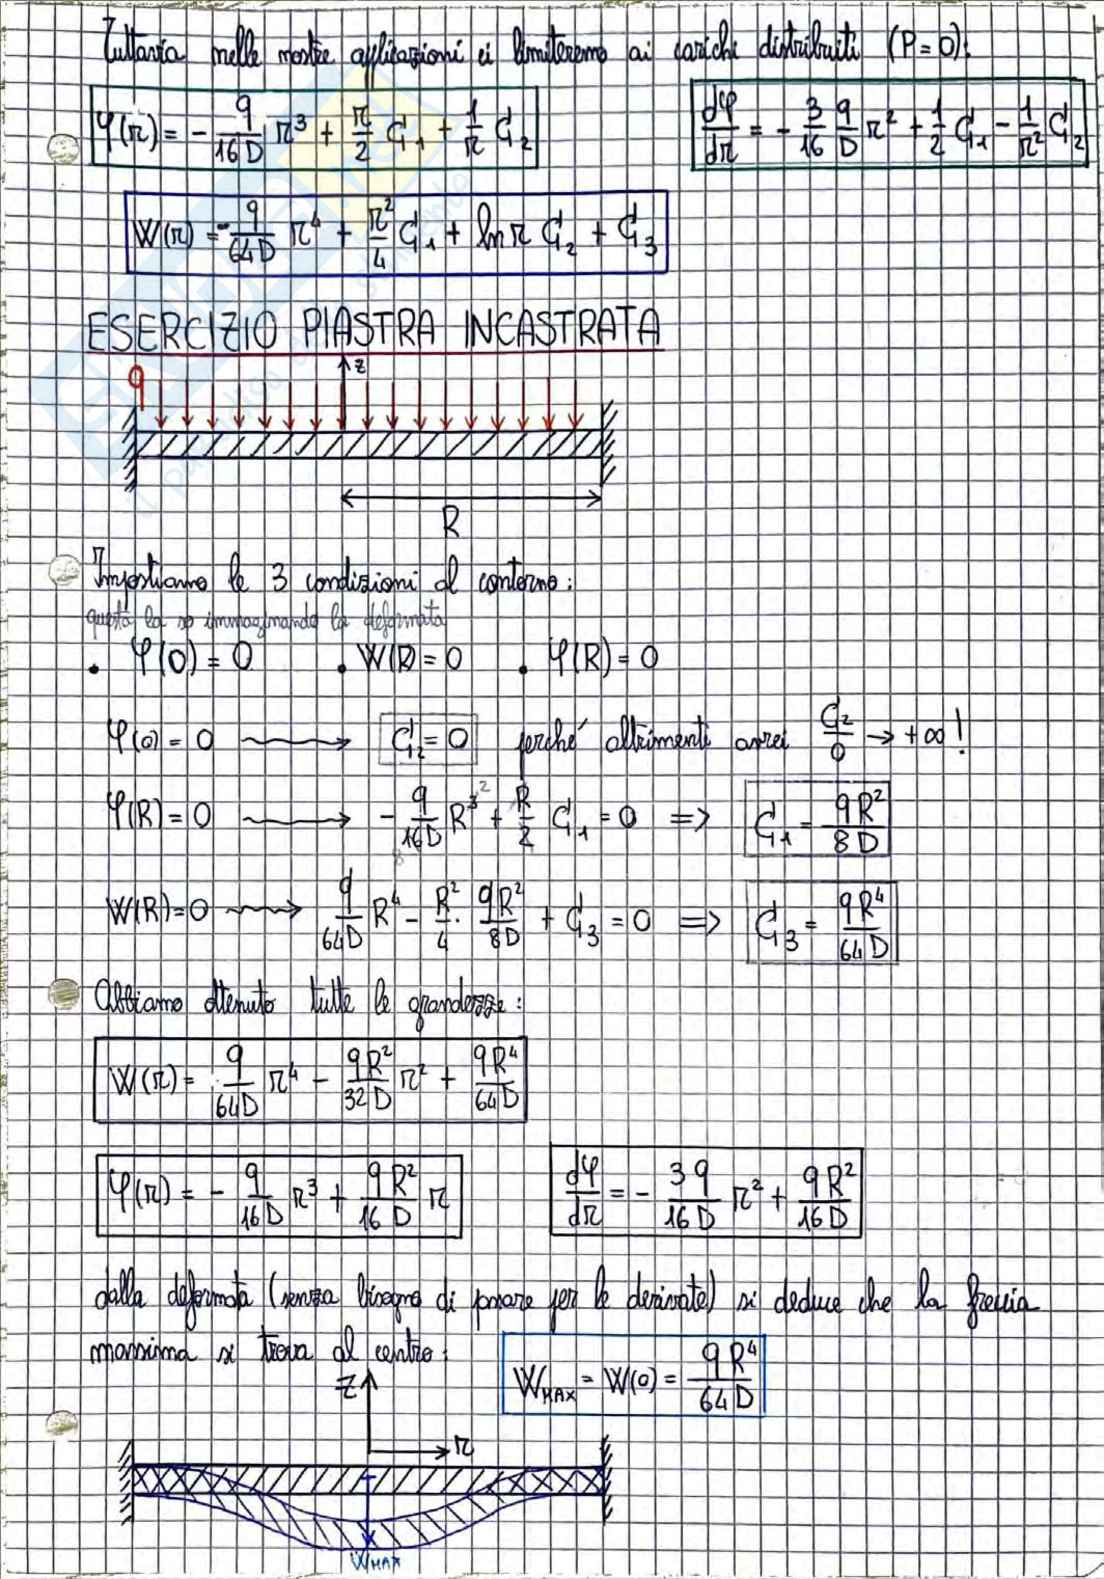 Tuttavia nelle nostre applicazioni ci limiteremo ai carichi distribuiti (P=0):
φ(r) = - q/16D r³ + r/2 C₁ + 1/r C₂
dφ/dr = - 3/16 q/D r² + 1/2 C₁ - 1/r² C₂
W(r) = - q/64D r⁴ + r²/4 C₁ + ln r C₂ + C₃
ESERCIZIO PIASTRA INCASTRATA
q
z
R
Impostiamo le 3 condizioni al contorno:
questa la so immaginando la deformata
• φ(0) = 0 • W(R) = 0 • φ(R) = 0
φ(0) = 0 → C₂ = 0 perché altrimenti avrei C₂/0 → +∞!
φ(R) = 0 → - q/16D R³ + R/2 C₁ = 0 => C₁ = qR²/8D
2
8
W(R) = 0 → q/64D R⁴ - R²/4 · qR²/8D + C₃ = 0 => C₃ = qR⁴/64D
Abbiamo ottenuto tutte le grandezze:
W(r) = q/64D r⁴ - qR²/32D r² + qR⁴/64D
φ(r) = - q/16D r³ + qR²/16D r
dφ/dr = - 3q/16D r² + qR²/16D
dalla deformata (senza bisogno di passare per le derivate) si deduce che la freccia
massima si trova al centro:
W_MAX = W(0) = qR⁴/64D
Z
r
W_MAX